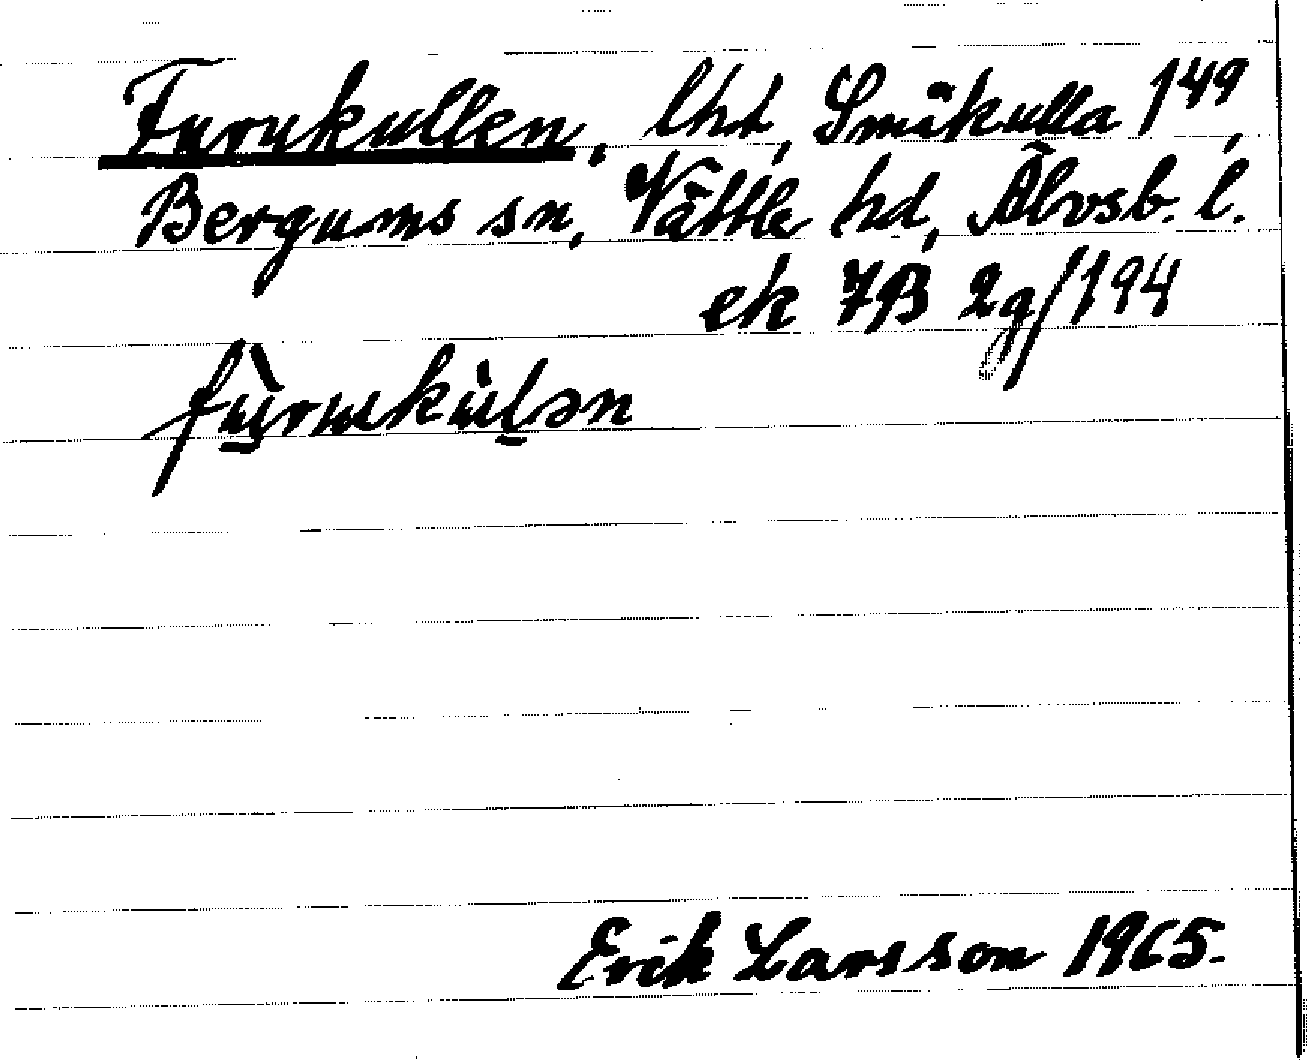 Furukullen, lht, Småkulla 1⁴⁹,
Bergums sn, Vättle hd, Älvsb. l.
ek 7B 2g/194
fùrukùlən
Erik Larsson 1965.